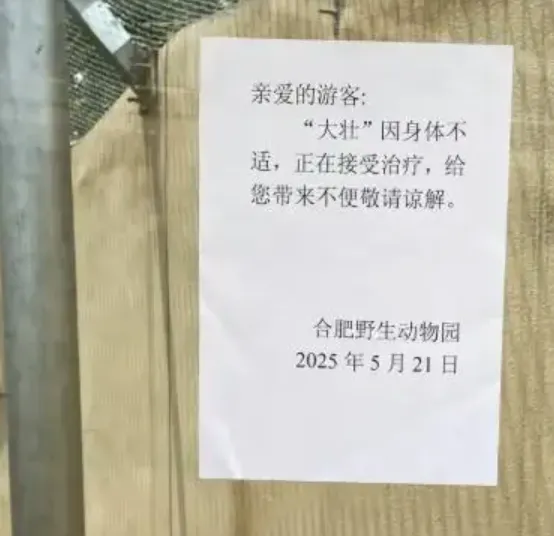 亲爱的游客:
“大壮”因身体不
适，正在接受治疗，给
您带来不便敬请谅解。
合肥野生动物园
2025 年 5 月 21 日